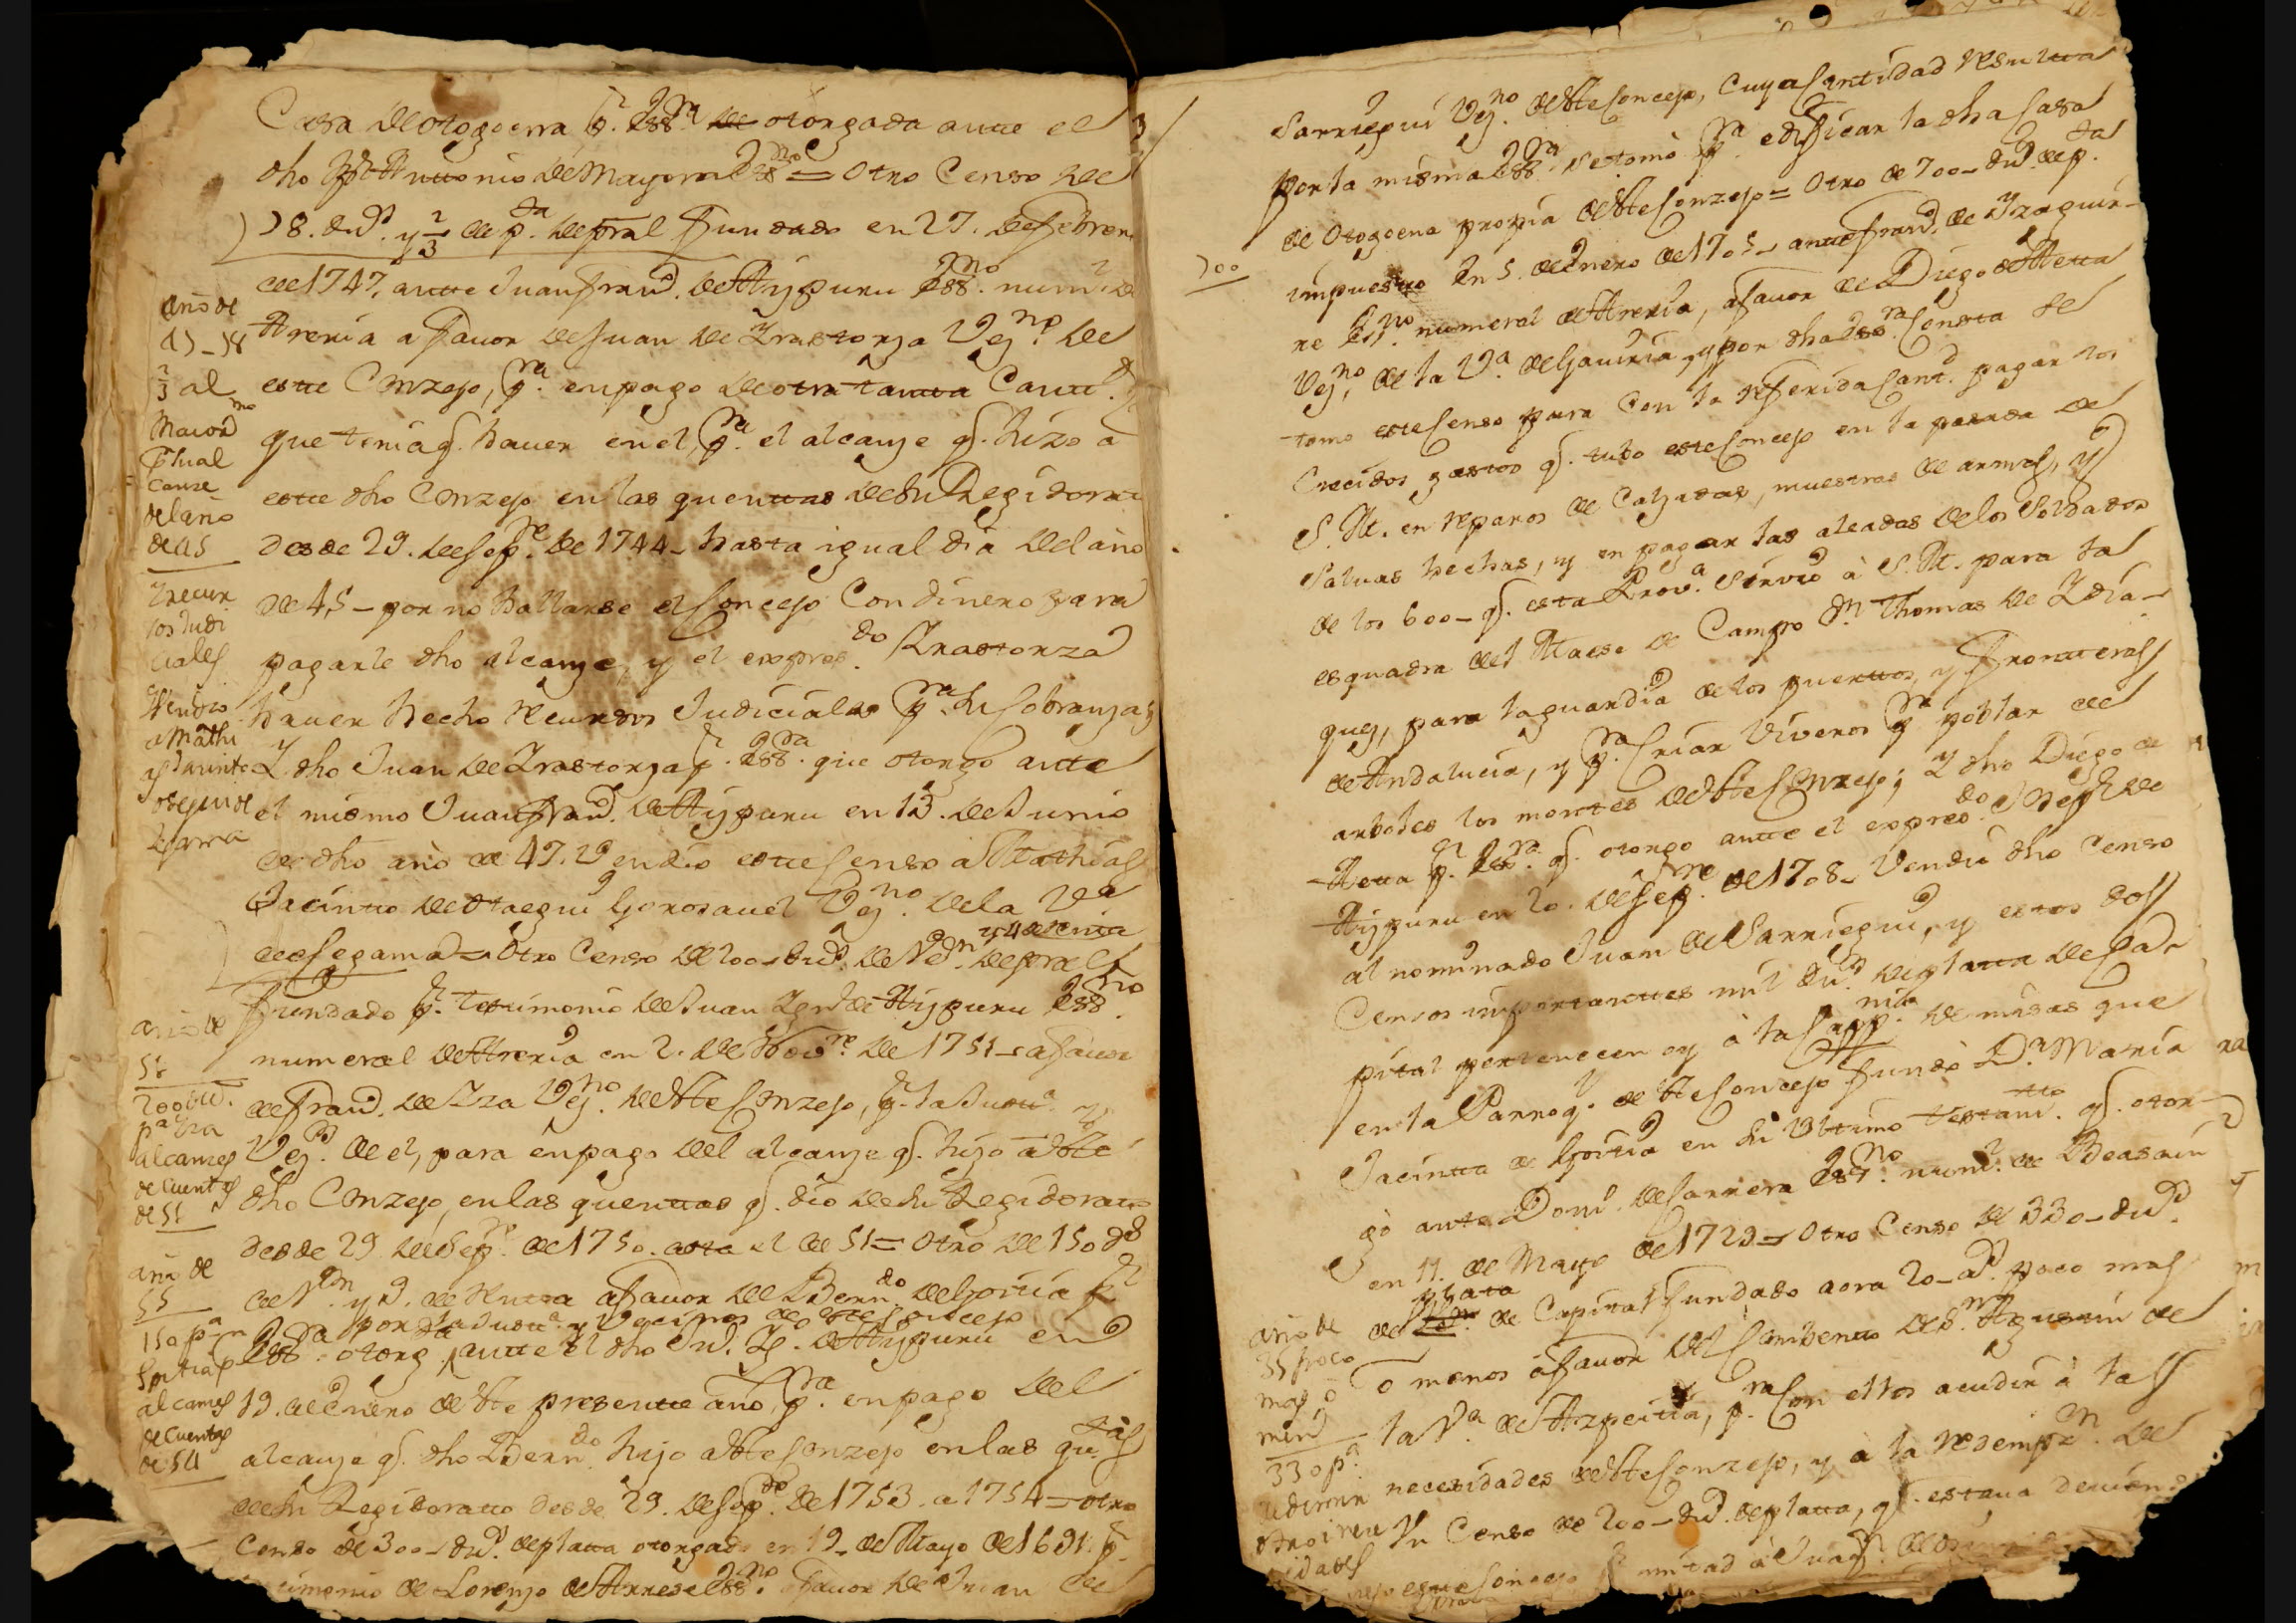 Casa de otogoena p. Ess.ra de otorgada ante el
dho Antonio de Mayora Ess.no = Otro Censo de
78. du.s y 2/3 de p.ta de pral fundado en 27. de Febrero
de 1747. ante Juan Fran.co de Aypuru Ess.no num.l de
Areria a favor de Juan de Yrastorza Vez.no de
este Conzejo, p.ra en pago de otra tanta Cant.d
que tenia q. haver en el, p.ra el alcanze q. hizo a
este dho Conzejo en las quentas de su Regidoria
desde 29. de Sep.re de 1744 - hasta igual dia del año
de 45 - por no hallarse el Concejo Con dinero para
pagarle dho alcanze, y el expres.do Yrastorza
haver hecho recursos Judiciales p.ra su Cobranza;
Y dho Juan de Yrastorza p.r Ess.ra que otorgo ante
el mismo Juan Fran.co de Aypuru en 13. de Junio
de dho año de 47. Vendio este Censo a Mathias
Jacinto de Otaegui Gorosavel Vez.no de la V.a
de Segama = Otro Censo de 200 - du.s de V.on y 4 de renta de pral
fundado p.r testimonio de Juan Ign.o de Aypuru Ess.no
numeral de Areria en 2. de Nov.re de 1751 - a favor
de Fran.co de Yza Vez.no de este Conzejo, p.r la Justi.a y
Vez.s de el, para en pago del alcanze q. hizo a este
dho Conzejo, en las quentas q. dio de su Regidorato
desde 29 de Sep.re de 1750. asta el de 51 = Otro de 150 d.s
de V.on y 9. de Renta a favor de Bern.do de Goritia p.r
Ess.ra por la Justi.a y Vecinos de este Concejo
otorg.da ante el dho Ju.n Yg.o de Aypuru en
19. de Enero de este presente año, p.ra en pago del
alcanze q. dho Bern.do hizo a este Conzejo en las qu.tas
de su Regidorato desde 29. de Sep.re de 1753. a 1754 = otro
Censo de 300 - du.s de plata otorgado en 19 - de Mayo de 1691 p.r
timonio de Lorenzo de Arrese Ess.no a favor de Juan de
año de
47 - 78
2/3 al
Maior
del año
de 45
recur
sos Judi
ciales
Vendio
a Mathi
as Jacinto
otegui de
año de
51
200 du.s
alcanzes
de Cuentas
de 51
año de
55
150 p.ra
alcanzes
de Cuentas
de 54
3
Sarriegui Vez.no de este Concejo, Cuya Cantidad resulta
por la misma Ess.ra se tomò p.ra edificar la dha Casa
de Otogoena propia de este Conzejo = Otro de 700 - du.s de p.ta
impuesto En 5. de Enero de 1705 - ante Fran.co de Yzaguir-
re Ess.no numeral de Areria, a favor de Diego de Aeta
Vez.no, de la V.a de Gaviria, y por dha Ess.ra Consta se
tomo este Censo para Con la referida Cant.d pagar los
Crecidos gastos q. tubo este Concejo en la pasada de
S. M. en reparos de Calzadas, muestras de armas, y
Salvas hechas, y en pagar las aleadas de los Soldados
de los 600 - q. esta Prov.a Sirvio à S. M. para la
esquadra del Maese de Campo D.n Thomas de Ydia-
quez, para la guardia de los puertos, y Fronteras
de Andalucia, y p.ra Criar Viveros p.ra poblar de
arboles los montes de este Conzejo; Y dho Diego de
Aeta p.r Ess.ra q. otorgo ante el expres.do Joseph de
Aypuru en 20. de Sep.re de 1708 - Vendio dho Censo
al nominado Juan de Sarriegui, y estos dos
Censos importantes mil du.s de plata de Ca-
pital pertenecen oy à la Capp.nia de misas que
en la Parroq.a de este Concejo fundò D.a Maria
Jacinta de Goitia en su Ultimo testam.to q. otor-
gò ante Dom.o de Sarrera Ess.no num.l de Beasain
en 11. de Mayo de 1729 = Otro Censo de 330 - du.s
de plata de Capital fundado aora 20 - a.s poco mas
o menos a favor del Combento de S.n Agustin de
la V.a de Azpeitia, p.ra Con ellos acudir à las
necesidades de este Conzejo, y à la redemp.on de
Un Censo de 200 - du.s de plata, q. estava debien
700
año de
35 poco
mas o
men.s
330 p.a